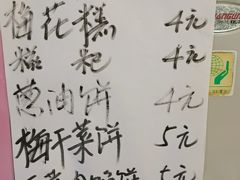 梅花糕 4元
糍粑 4元
葱油饼 4元
梅干菜饼 5元
5元